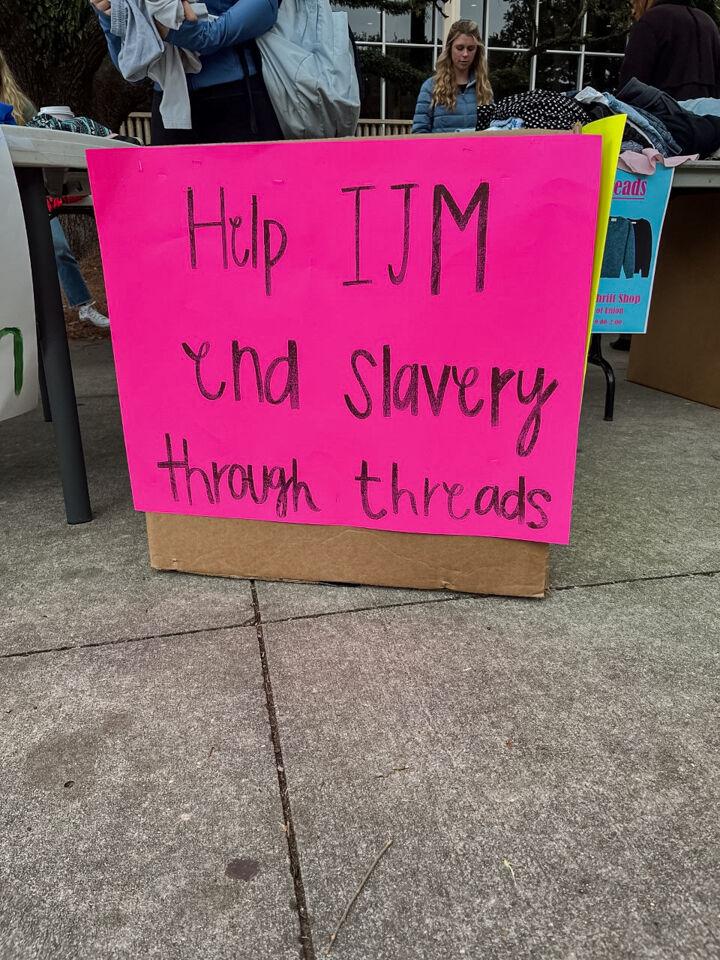 Help IJM
end slavery
through threads
eads
hrift Shop
of Union